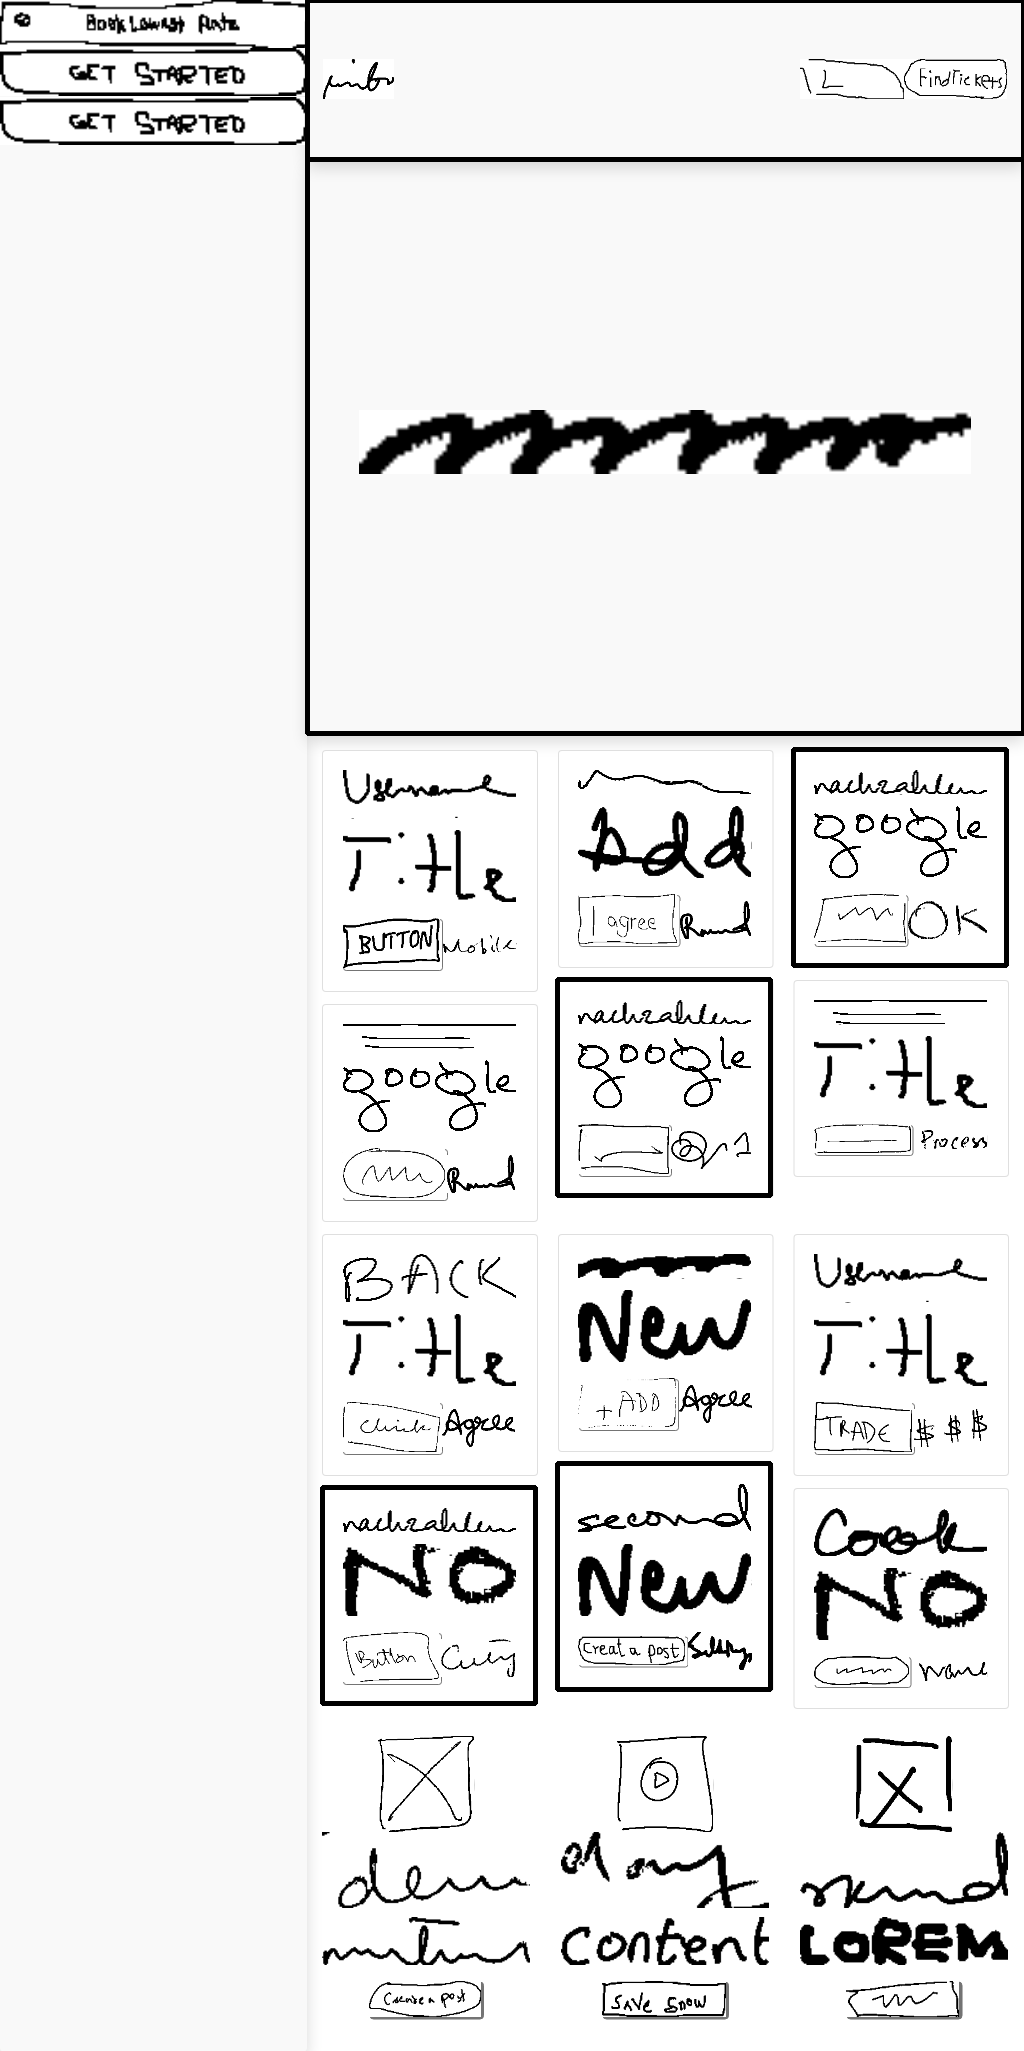 Book Lowest Rate
GET STARTED
GET STARTED
L FindTickets
Username
Title
BUTTON Mobile
Add
I agree Round
nachzahlen
google
OK
google
Round
nachzahlen
google
1
Title
Process
BACK
Title
Click Agree
New
+ ADD Agree
Username
Title
TRADE $ $ $
nachzahlen
NO
Button
second
New
Creat a post
Cook
NO
Name
Content
LOREM
Create a post
SAVE SNOW